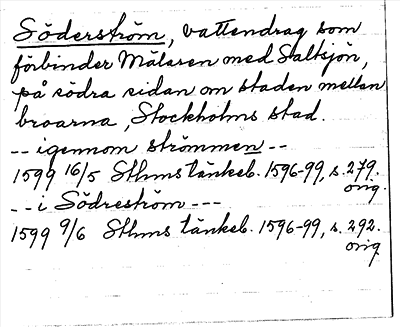 Söderström, vattendrag som
förbinder Mälaren med Saltsjön,
på södra sidan om staden mellan
broarna, Stockholms stad.
-- igennom strömmen --
1599 16/5 Sthms tänkeb. 1596-99, s. 279.
orig.
-- i Södreström ---
1599 9/6 Sthms tänkeb. 1596-99, s. 292.
orig